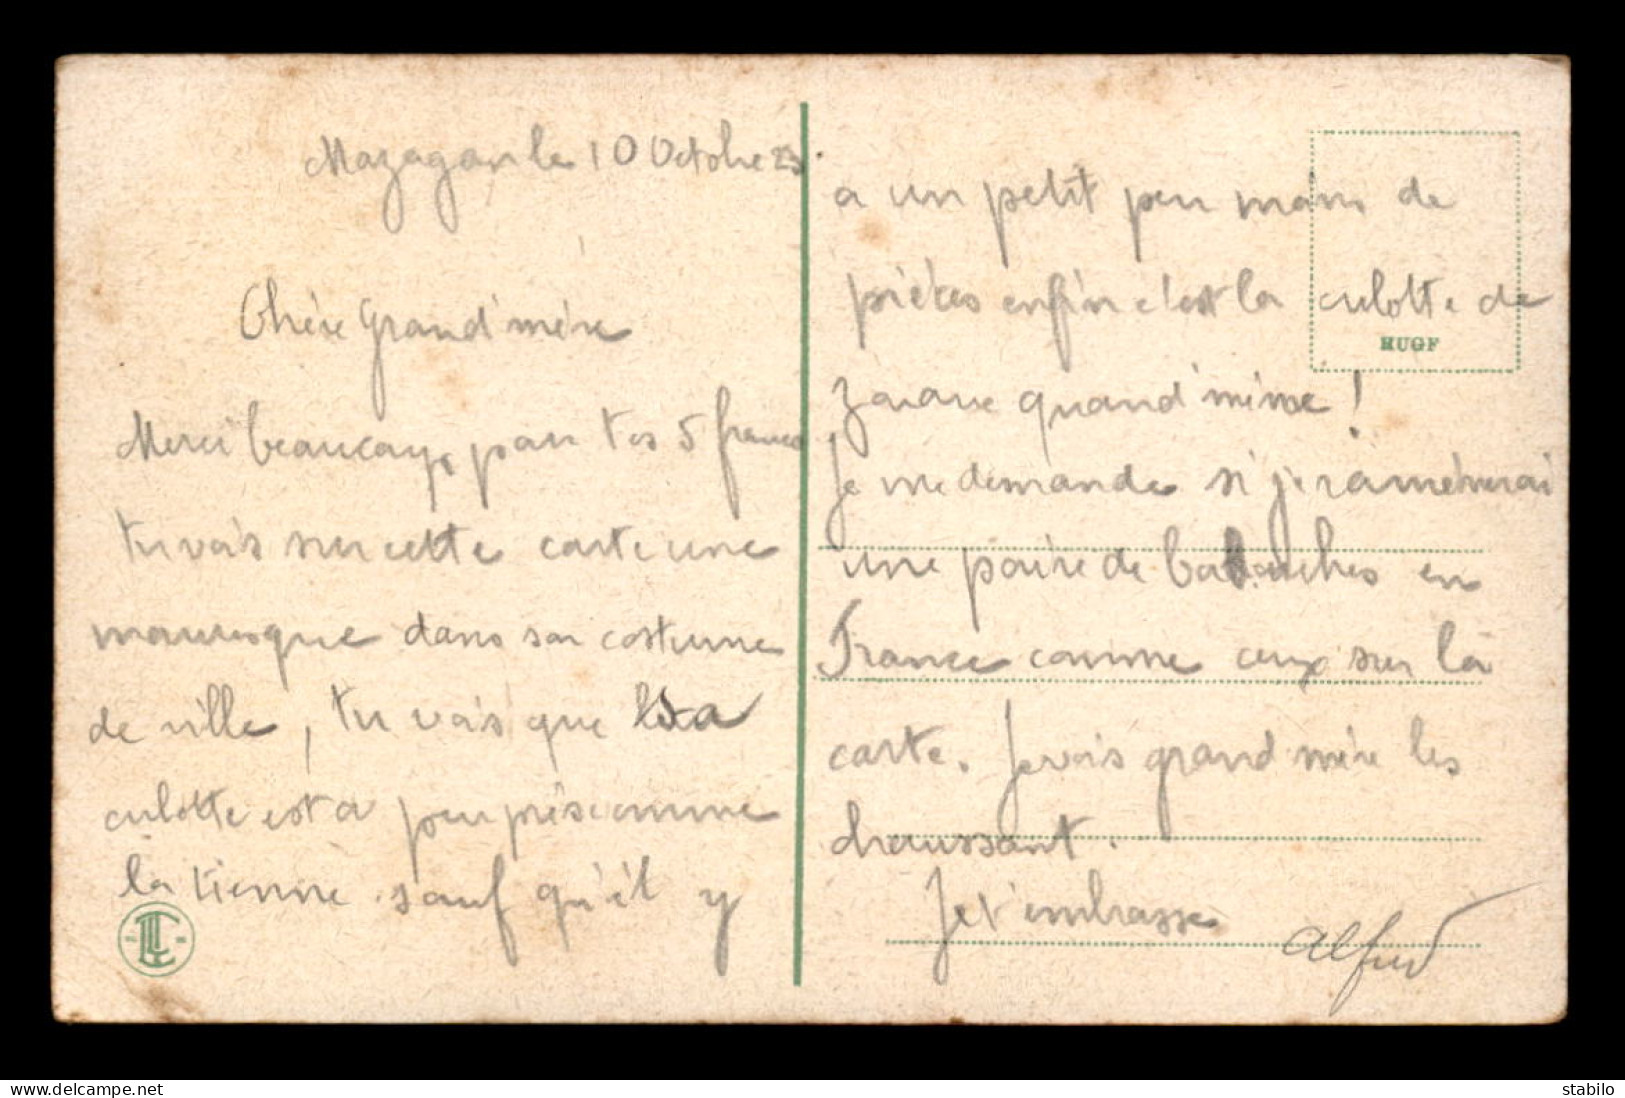 Mazagan le 10 Octobre 23.
Chère Grand'mère
Merci beaucoup pour tes 5 francs
tu vois sur cette carte une
mauresque dans son costume
de ville, tu vois que sa
culotte est a peu près comme
la tienne sauf qu'il y
a un petit peu moins de
pièces enfin c'est la culotte de
zouave quand'même!
Je me demande si je ramènerai
une paire de babouches en
France comme ceux sur la
carte. Je vois grand mère les
chaussant.
Je t'embrasse
Alfred
HUGF
LL
delcampe.net
stabilo